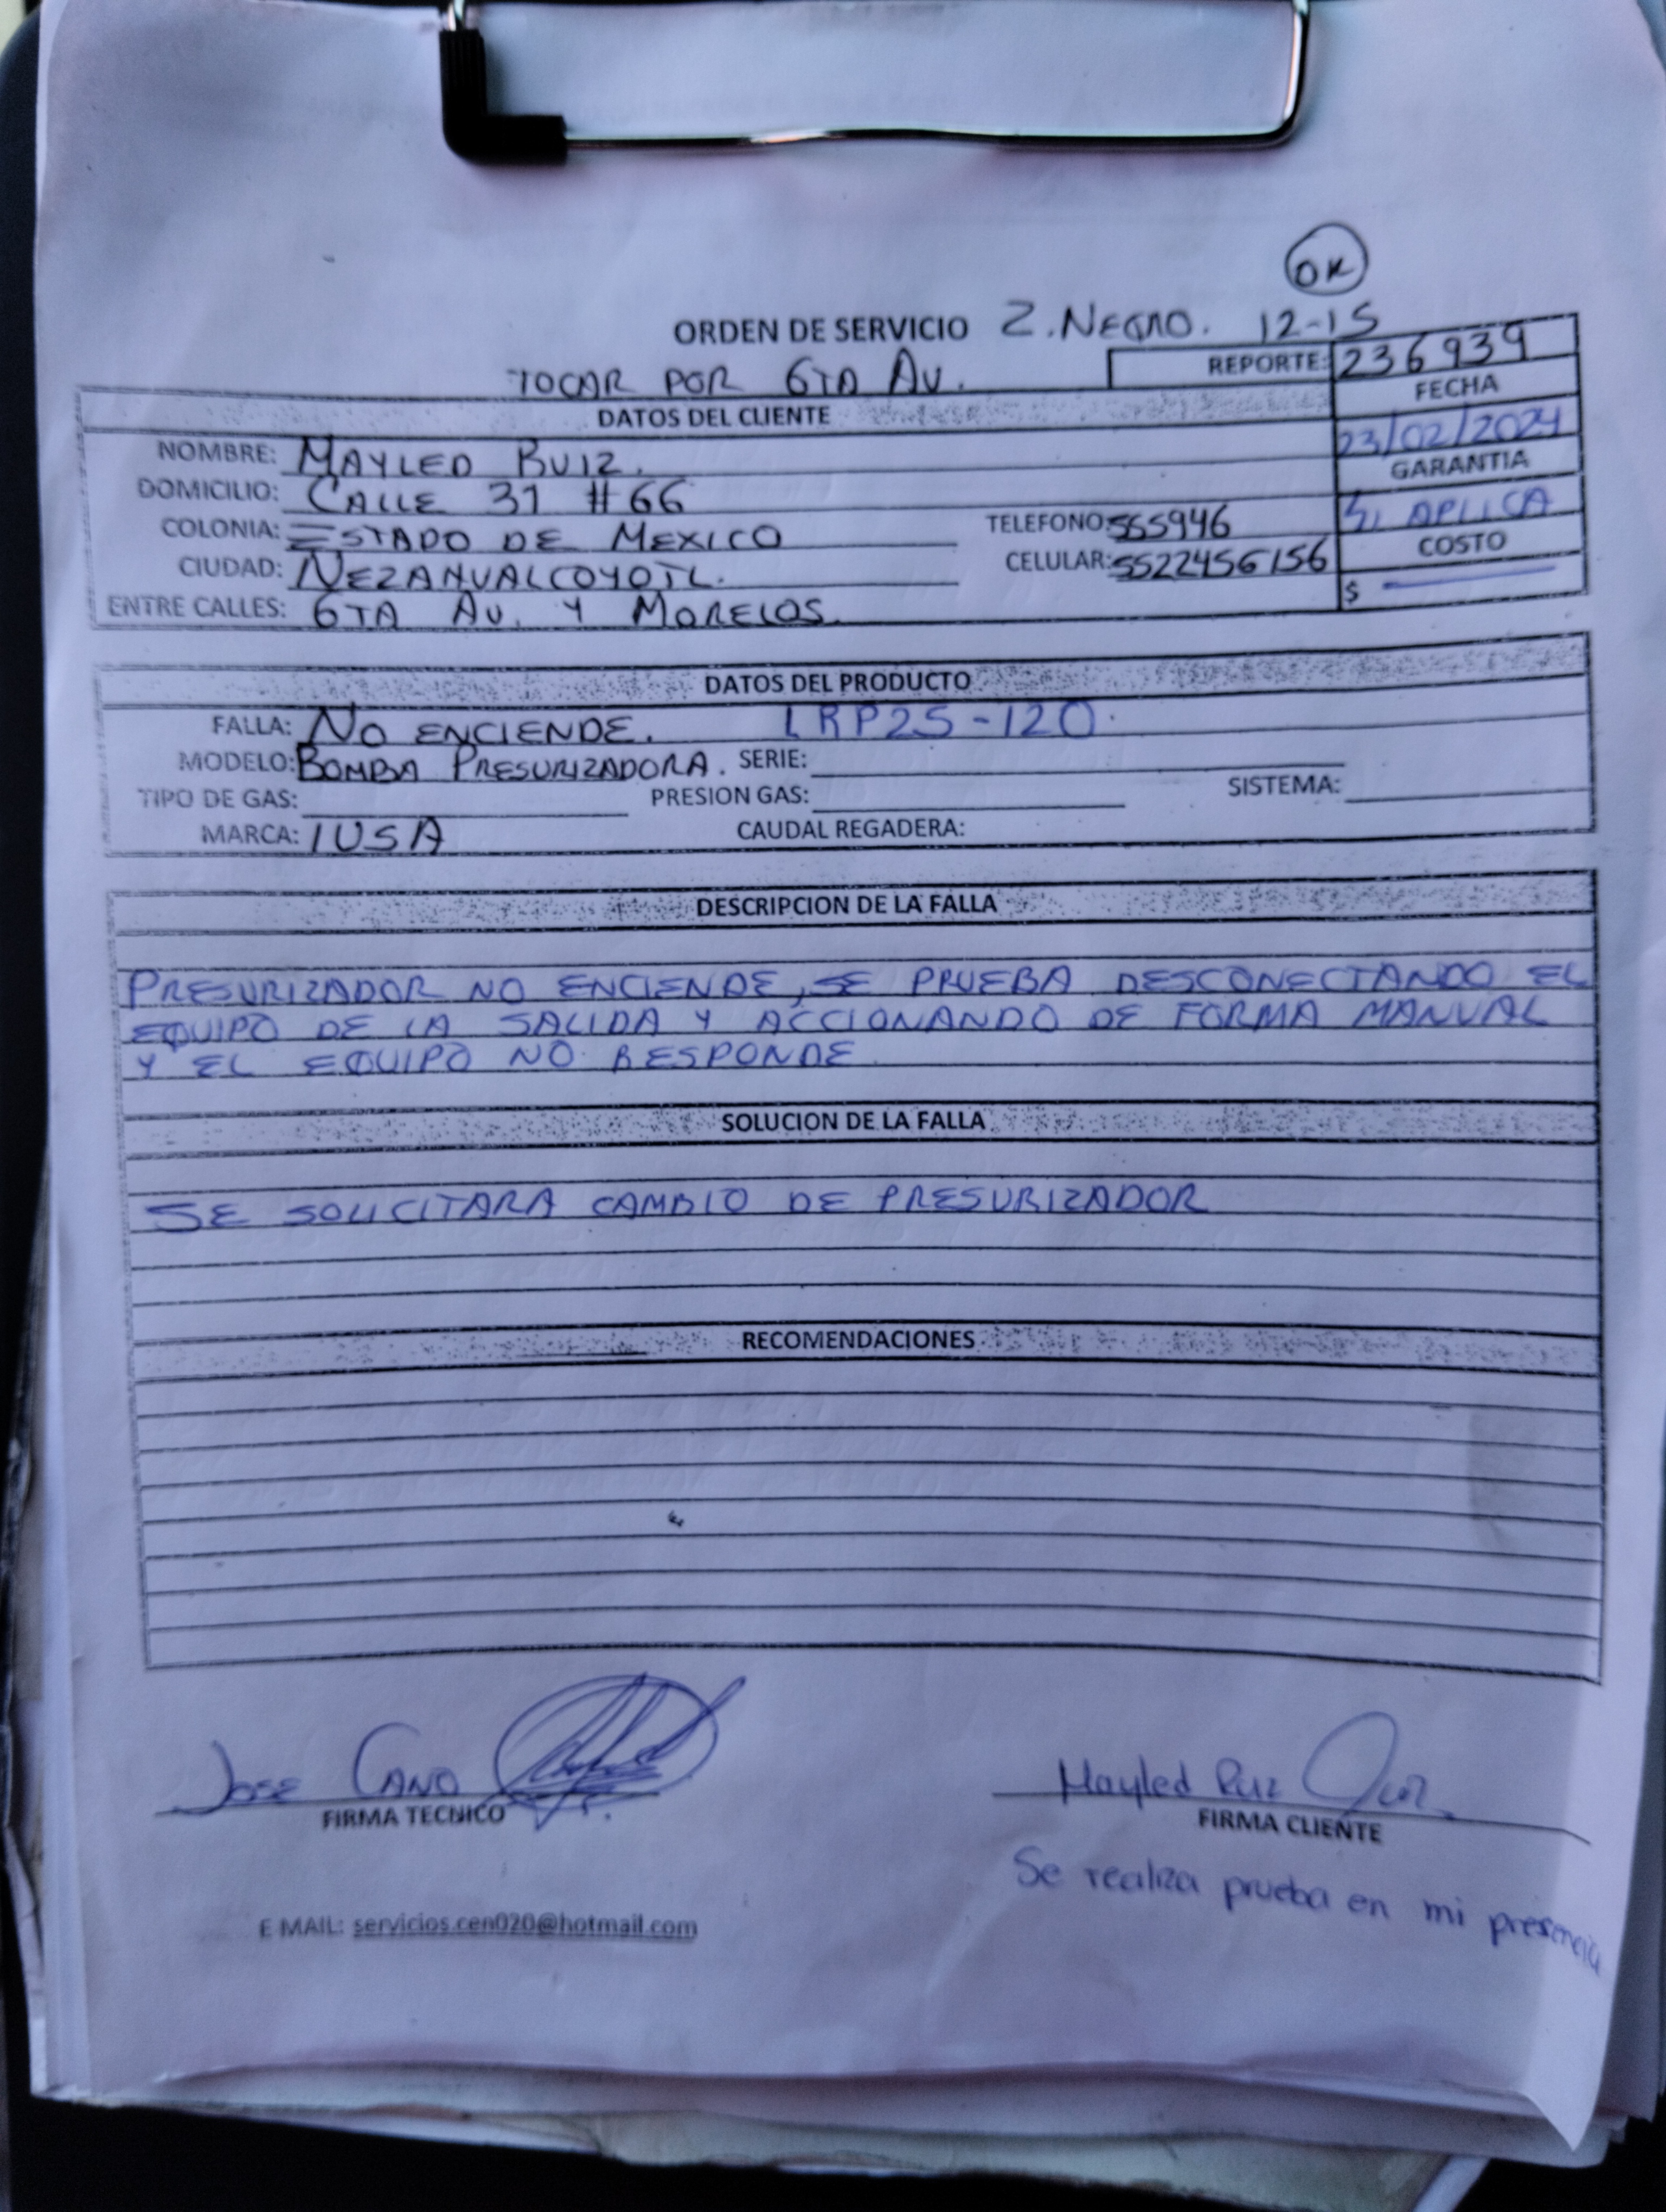 OK
ORDEN DE SERVICIO Z. NEGRO. 12-15
TOCAR POR 6TA AV. REPORTE: 236939
DATOS DEL CLIENTE FECHA
23/02/2024
NOMBRE: MAYLED RUIZ. GARANTIA
DOMICILIO: CALLE 31 #66 SI APLICA
COLONIA: ESTADO DE MEXICO TELEFONO: 565946 COSTO
CIUDAD: NEZAHUALCOYOTL. CELULAR: 5522456156
ENTRE CALLES: 6TA AV. Y MORELOS. $
DATOS DEL PRODUCTO
FALLA: NO ENCIENDE. LRP25-120
MODELO: BOMBA PRESURIZADORA. SERIE:
TIPO DE GAS: PRESION GAS: SISTEMA:
MARCA: IUSA CAUDAL REGADERA:
DESCRIPCION DE LA FALLA
PRESURIZADOR NO ENCIENDE, SE PRUEBA DESCONECTANDO EL
EQUIPO DE LA SALIDA Y ACCIONANDO DE FORMA MANUAL
Y EL EQUIPO NO RESPONDE
SOLUCION DE LA FALLA
SE SOLICITARA CAMBIO DE PRESURIZADOR
RECOMENDACIONES
JOSE CANO Mayled Ruiz
FIRMA TECNICO FIRMA CLIENTE
Se realiza prueba en mi presencia
E MAIL: servicios.cen020@hotmail.com